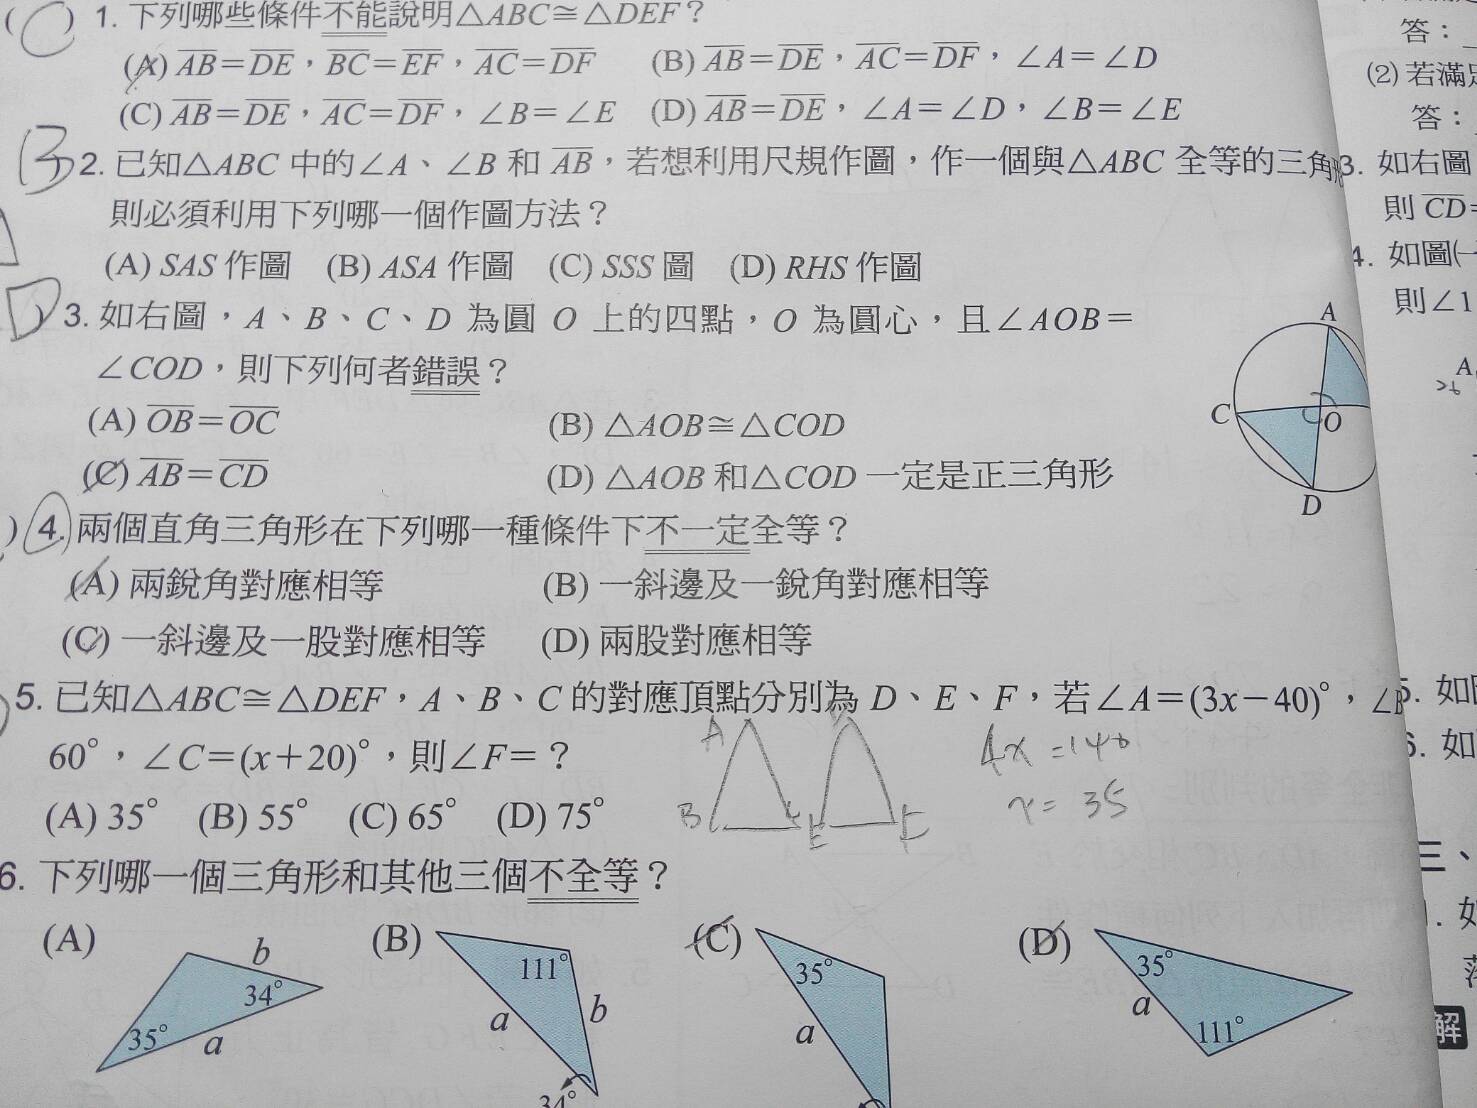 ( C ) 1. 下列哪些條件不能說明△ABC≅△DEF？
(A) AB=DE，BC=EF，AC=DF (B) AB=DE，AC=DF，∠A=∠D
(C) AB=DE，AC=DF，∠B=∠E (D) AB=DE，∠A=∠D，∠B=∠E
B ) 2. 已知△ABC 中的∠A、∠B 和 AB，若想利用尺規作圖，作一個與△ABC 全等的三角形
則必須利用下列哪一個作圖方法？
(A) SAS 作圖 (B) ASA 作圖 (C) SSS 圖 (D) RHS 作圖
D ) 3. 如右圖，A、B、C、D 為圓 O 上的四點，O 為圓心，且∠AOB=
∠COD，則下列何者錯誤？
(A) OB=OC (B) △AOB≅△COD
(C) AB=CD (D) △AOB 和△COD 一定是正三角形
A
C
O
D
) 4. 兩個直角三角形在下列哪一種條件下不一定全等？
(A) 兩銳角對應相等 (B) 一斜邊及一銳角對應相等
(C) 一斜邊及一股對應相等 (D) 兩股對應相等
) 5. 已知△ABC≅△DEF，A、B、C 的對應頂點分別為 D、E、F，若∠A=(3x−40)°，∠B
60°，∠C=(x+20)°，則∠F=？
(A) 35° (B) 55° (C) 65° (D) 75°
A
B
E
4x=140
x=35
6. 下列哪一個三角形和其他三個不全等？
(A) b 34° 35° a
(B) 111° a b 34°
(C) 35° a
(D) 35° a 111°
答：
(2) 若滿足
答：
3. 如右圖
則 CD=
4. 如圖(一
則∠1
A
5. 如
6. 如
三、
1. 如
解